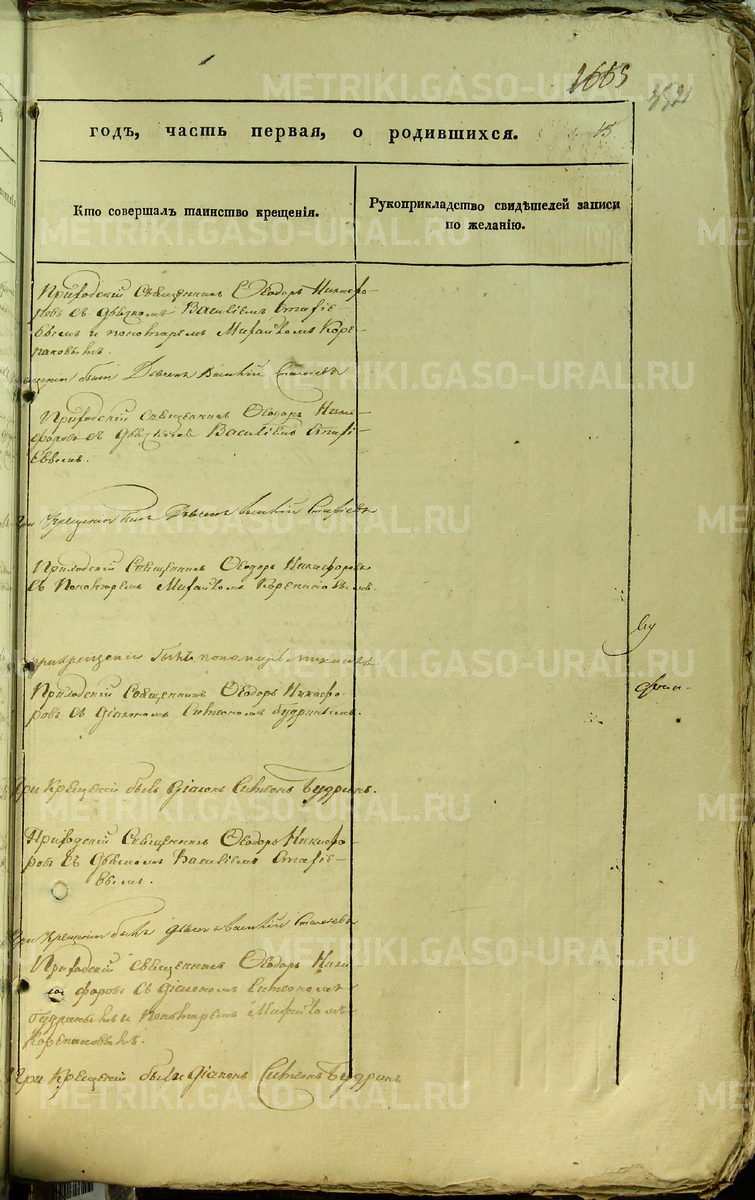 METRIKI.GASO-URAL.RU
1665
годъ, часть первая, о родившихся. 15
Кто совершалъ таинство крещенія.
Рукоприкладство свидѣтелей записи
по желанію.
Приходскій Священникъ Ѳеодоръ Никифо-
ровъ съ дьячкомъ Василіемъ Стафіе-
вымъ и пономаремъ Михайломъ Коре-
пановымъ.
былъ Дьячекъ Василій
Приходскій Священникъ Ѳеодоръ Ники-
форовъ съ дьячкомъ Василіемъ Стафі-
евымъ.
При крещеніи былъ Дьячекъ Василій Стафіевъ
Приходскій Священникъ Ѳеодоръ Никифоровъ
съ Пономаремъ Михайломъ Корепановымъ.
При крещеніи былъ пономарь
Приходскій Священникъ Ѳеодоръ Никифо-
ровъ съ діакономъ Симеономъ Будринымъ.
При Крещеніи былъ Діаконъ Симеонъ Будринъ.
Приходскій Священникъ Ѳеодоръ Никифо-
ровъ съ дьячкомъ Василіемъ Стафіе-
вымъ.
При Крещеніи былъ Василій
Приходскій Священникъ Ѳеодоръ Ники-
форовъ съ діакономъ Симеономъ
Будринымъ и Пономаремъ Михайломъ
Корепановымъ.
При Крещеніи были Діаконъ Симеонъ Будринъ